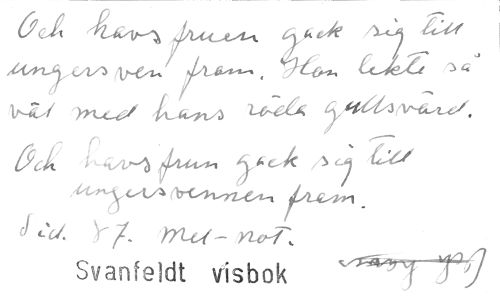 Och havsfruen gack sig till
ungersven fram. Hon lekte så
väl med hans röda gullsvärd.
Och havsfrun gack sig till
ungersvennen fram.
Sid. 87. Mel-not.
Svanfeldt visbok